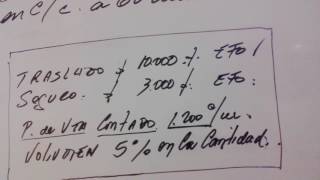 en c/c. a
TRASLADO $ 10.000.- EFO/
SEGURO. $ 3.000.- EFO.
P. de VTA CONTADO 1.200 c/u.
VOLUMEN 5% en la Cantidad.